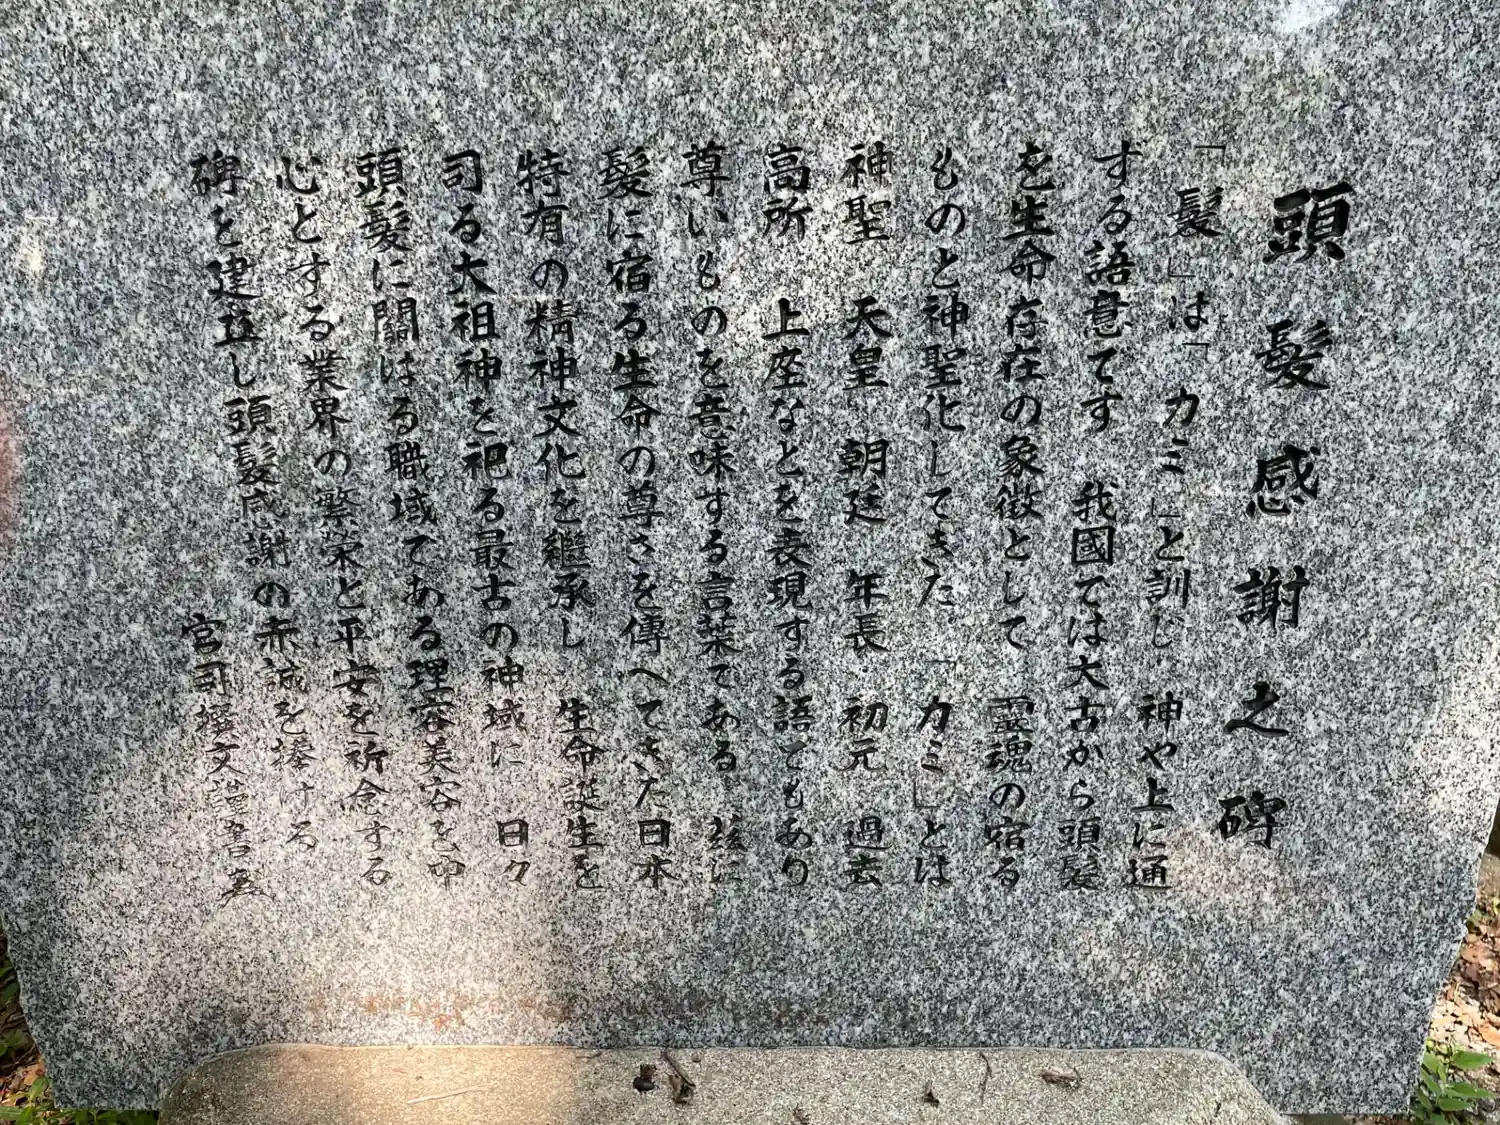 頭髪感謝之碑
「髪」は「カミ」と訓じ 神や上に通
する語意てす 我國ては大古から頭髪
を生命存在の象徴として 霊魂の宿る
ものと神聖化してきた。「カミ」とは
神聖 天皇 朝廷 年長 初元 過去
高所 上座なとを表現する語てもあり
尊いものを意味する言葉である 茲に
髪に宿る生命の尊さを傳へてきた日本
特有の精神文化を継承し 生命誕生を
司る大祖神を祀る最古の神域に 日々
頭髪に關はる職域てある理容美容を中
心とする業界の繁栄と平安を祈念する
碑を建立し頭髪感謝の赤誠を捧ける
宮司撰文謹書